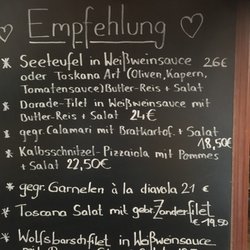 Empfehlung
* Seeteufel in Weißweinsauce 26€
oder Toskana Art (Oliven, Kapern,
Tomatensauce) Butter-Reis + Salat
* Dorade-Filet in Weißweinsauce mit
Butter-Reis + Salat 24€
* gegr. Calamari mit Bratkartof. + Salat
18,50€
* Kalbsschnitzel-Pizzaiola mit Pommes
+ Salat 22,50€
* gegr. Garnelen à la diavola 21€
* Toscana Salat mit gebr. Zanderfilet
€ 19,50
* Wolfsbarschfilet in Weißweinsauce